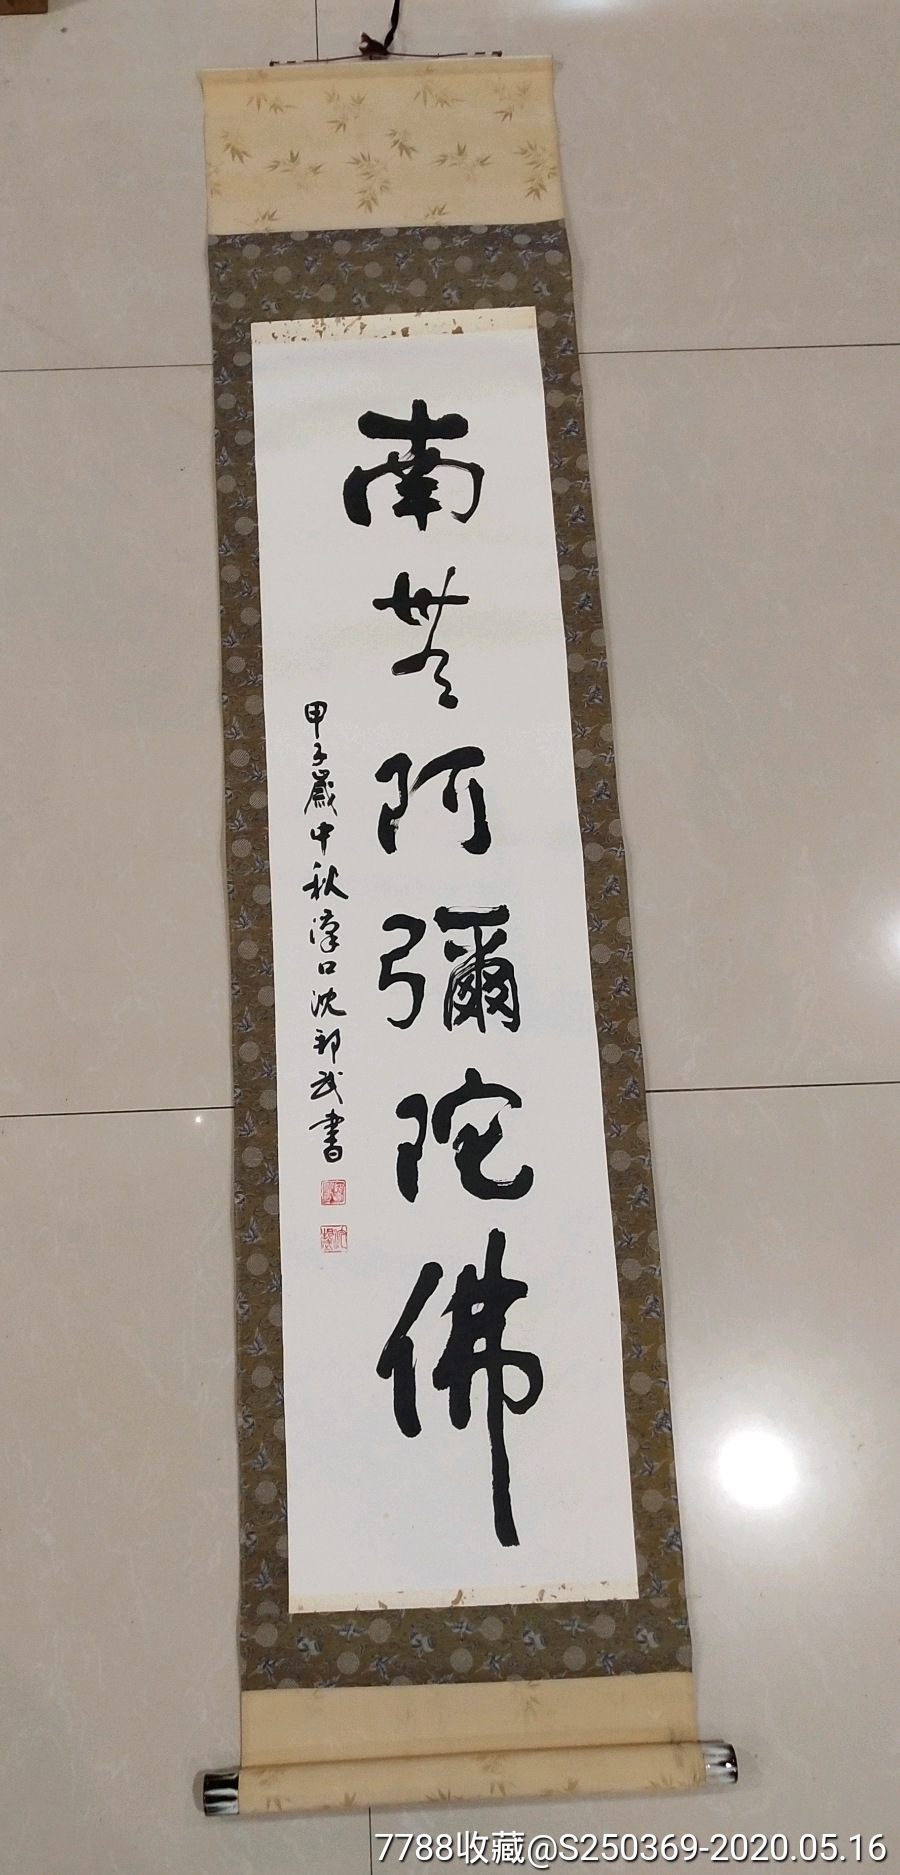 南無阿彌陀佛
甲子歲中秋漢口沈邦武書
7788收藏@S250369-2020.05.16